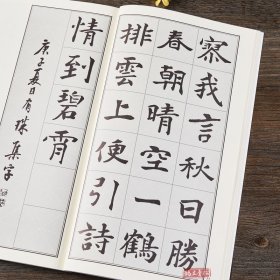 寥我言秋日勝
春朝晴空一鶴
排雲上便引詩
情到碧霄
庚子夏日有珠集字